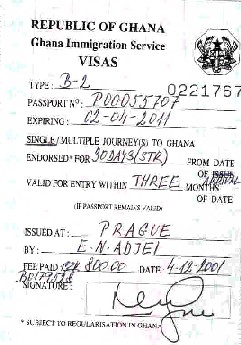 REPUBLIC OF GHANA
Ghana Immigration Service
VISAS
TYPE: B-2
0221757
PASSPORT Nº: P00055707
EXPIRING: 02-04-2011
SINGLE/MULTIPLE JOURNEY(S) TO GHANA
ENDORSED FOR 30DAYS(STR) FROM DATE
OF ISSUE
VALID FOR ENTRY WITHIN THREE MONTHS
OF DATE
(IF PASSPORT REMAINS VALID)
ISSUED AT: PRAGUE
BY: E.N. ADJEI
FEE PAID: 800.00 DATE 4-12-2001
SIGNATURE:
* SUBJECT TO REGULARISATION IN GHANA